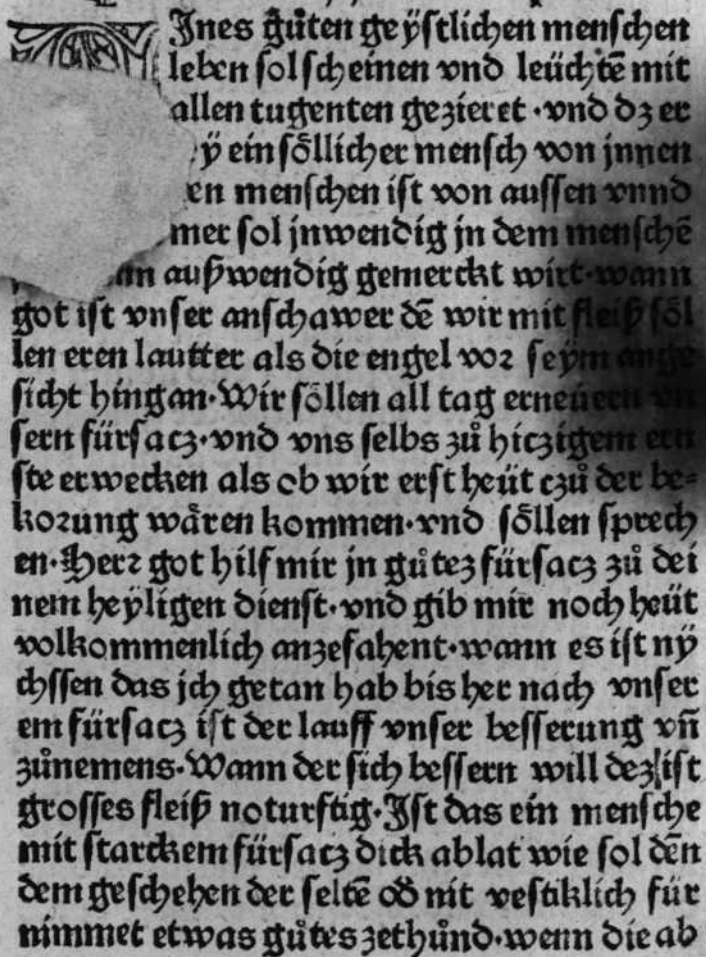 Ines gůten geÿſtlichen menſchen
leben ſol ſcheinen vnd leüchtē mit
allen tugenten gezieret ·vnd dz er
ein ſöllicher menſch von jnnen
menſchen iſt von auſſen vnnd
ſol jnwendig jn dem menſchē
außwendig gemerckt wirt·wann
got iſt vnſer anſchawer dē wir mit fleiß ſöl
len eren lautter als die engel voꝛ ſeÿm ange
ſicht hingan·Wir ſöllen all tag erneüern vn
ſern fürſacz·vnd vns ſelbs zů hiczigem ern
ſte erwecken als ob wir erſt heüt czů der be=
koꝛung wären kommen·vnd ſöllen ſprech
en·Herꝛ got hilf mir jn gůtez fürſacz zů dei
nem heÿligen dienſt·vnd gib mir noch heüt
volkommenlich anzefahent·wann es iſt nÿ
chſſen das jch getan hab bis her nach vnſer
em fürſacz iſt der lauff vnſer beſſerung vn̄
zůnemens·Wann der ſich beſſern will dez iſt
groſſes fleiß noturftig·Iſt das ein menſche
mit ſtarckem fürſacz dick ablat wie ſol dēn
dem geſchehen der ſeltē od̄ nit veſtiklich für
nimmet etwas gůtes zethůnd·wenn die ab